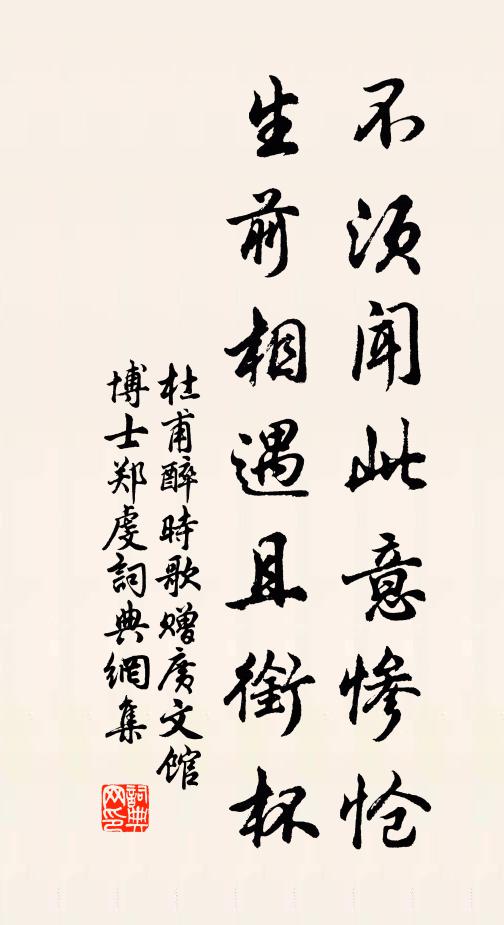 不须闻此意惨怆
生前相遇且銜杯
杜甫醉時歌赠廣文馆
博士郑虔詞典網集
詞典网印